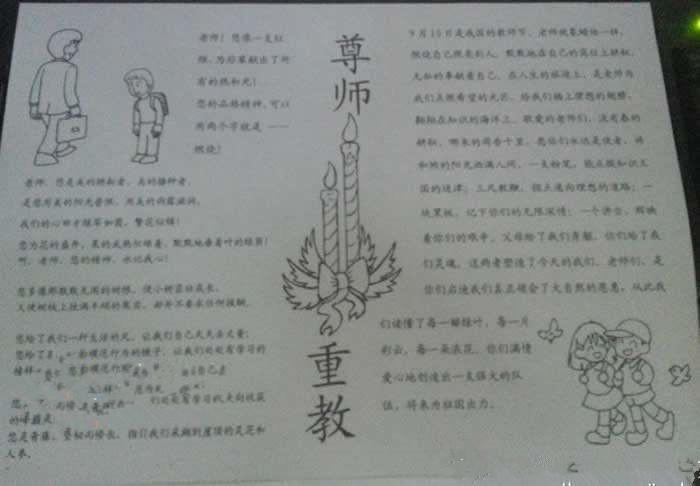 老师！您像一支红
烛，为后辈献出了所
有的热和光！
您的品格精神，可以
用两个字就是——
燃烧！
老师，您是美的耕耘者，美的播种者，
是您用美的阳光普照，用美的雨露滋润，
我们的心田才绿草如茵，繁花似锦！
您为花的盛开，果的成熟忙碌着，默默地垂着叶的绿荫！
啊，老师，您的精神，永记我心！
您多像那默默无闻的树根，使小树茁壮成长，
又使树枝上挂满丰硕的果实，却并不要求任何报酬。
您给了我们一杆生活的尺，让我们自己天天去丈量；
您给了 模范行为的镜子，让我们处处有学习的
榜样
处处有学习的 天向收获
的
您是青藤，坚韧而修长，指引我们采撷到崖顶的灵芝和
人参。
尊
师
重
教
9月10日是我国的教师节，老师就象蜡烛一样，
燃烧自己照亮别人，默默地在自己的岗位上耕耘，
无私的奉献着自己，在人生的旅途上，是老师为
我们点燃希望的光芒，给我们插上理想的翅膀，
翱翔在知识的海洋上。敬爱的老师们，没有春的
耕耘，哪来的荷香十里，愿你们永远是使者，将
和煦的阳光洒满人间，一支粉笔，能点拨知识王
国的迷津；三尺教鞭，指点通向理想的道路；一
块黑板，记下你们的无限深情；一个讲台，辉映
着你们的艰辛，父母给了我们身躯，你们给了我
们灵魂，这两者塑造了今天的我们，老师们，是
你们启迪我们真正领会了大自然的恩惠，从此我
们读懂了每一瓣绿叶，每一片
彩云，每一朵浪花，你们满情
爱心地创造出一支强大的队
伍，将来为祖国出力。